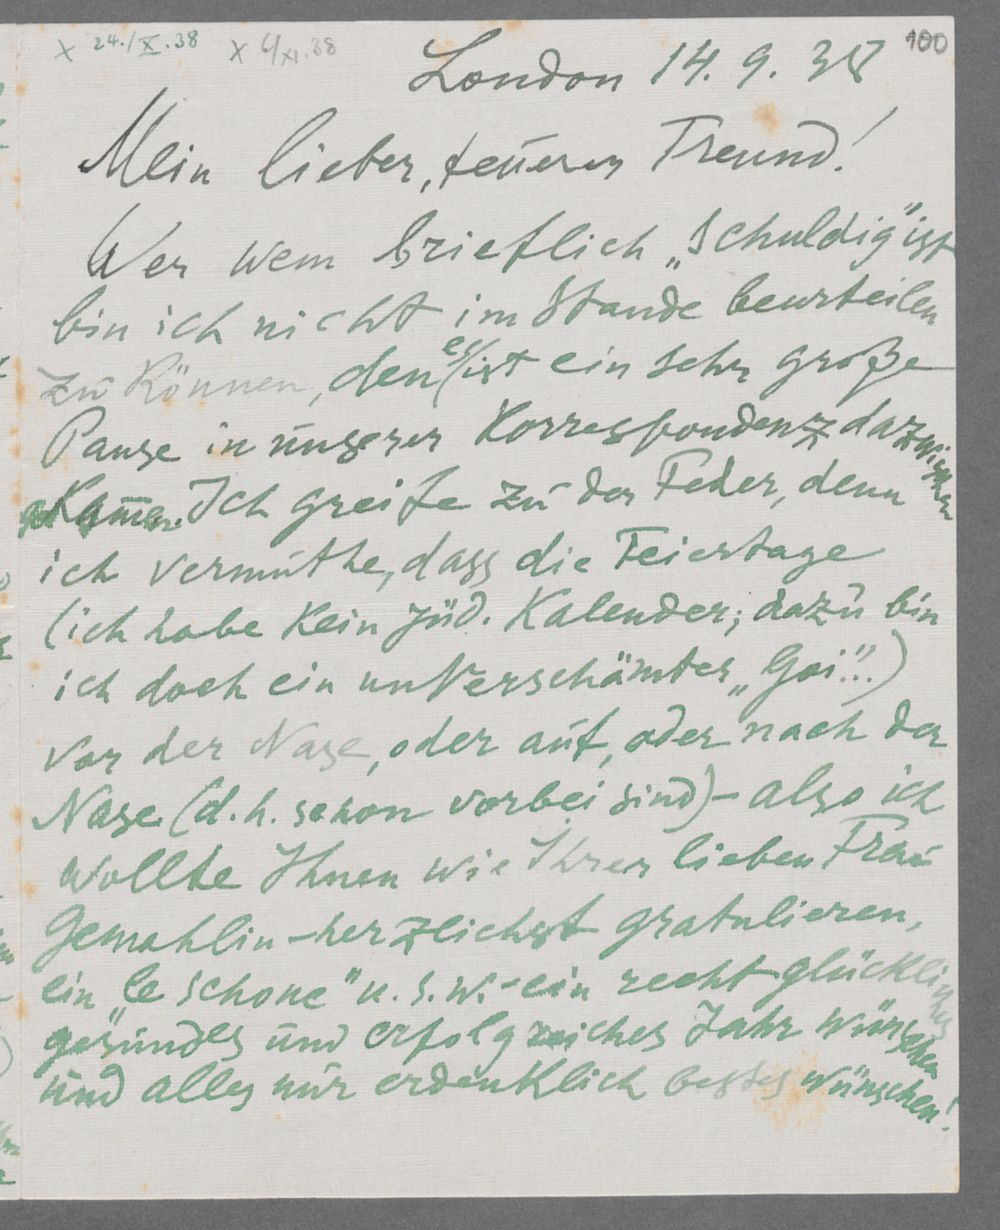 x 24./X.38 x 6/XI.38
100
London 14. 9. 38
Mein lieber, teurer Freund!
Wer wem brieflich „schuldig" ist
bin ich nicht im Stande beurteilen
zu können, den es ist ein sehr große
Pause in unserer Korrespondenz dazwischen
gekommen. Ich greife zu der Feder, denn
ich vermuthe, dass die Feiertage
(ich habe kein jüd. Kalender; dazu bin
ich doch ein unverschämter „Goi"..)
vor der Nase, oder auf, oder nach der
Nase (d.h. schon vorbei sind) – also ich
wollte Ihnen wie Ihrer lieben Frau
Gemahlin – herzlichst gratulieren,
ein „le schone" u.s.w. – ein recht glückliches
gesundes und erfolgreiches Jahr wünschen
und alles nur erdenklich bestes wünschen!